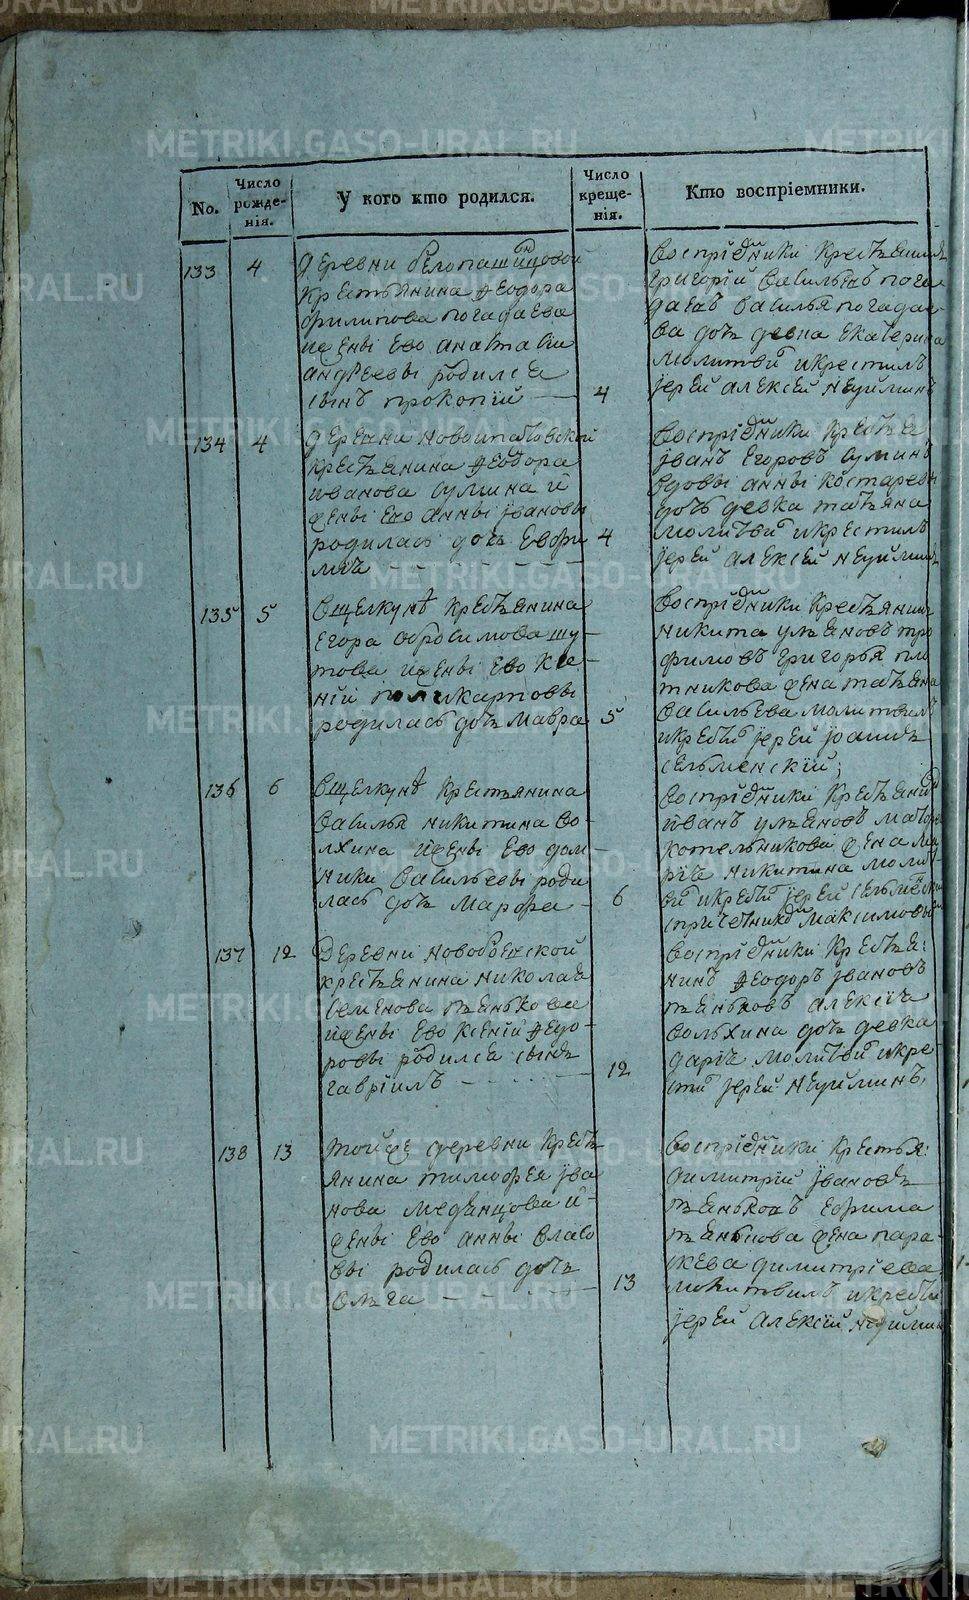 No.
Число рожде-нія.
У кого кто родился.
Число креще-нія.
Кто воспріемники.
133
4
деревни
крестьянина Феодора
филипова погадаева
ижены ево анастасіи
андреевы родился
сынъ прокопій
4
воспріемники крестьянинъ
григорій васильевъ пога
даевъ василья погадае
ва дочь девка екатерина
молитвой икрестилъ
іерей алексей неуйминъ
134
4
деревни новоипатовской
крестьянина Феодора
иванова сулина и
жены ево анны івановы
родилась дочь евфи
мія
4
воспріемники крестья
іванъ егоровъ сулинъ
вдовы анны костаревы
дочь девка татьяна
молитвой икрестилъ
іерей алексей неуйминъ
135
5
вщелкунѣ крестьянина
егора обросимова шу-
това ижены ево ксе-
ніи поликарповы
родилась дочь мавра
5
воспріемники крестьянинъ
никита ульяновъ тро
фимовъ григорья пло
тникова жена татьяна
васильева молитвилъ
икрестил іерей іоаннъ
сельменскій;
136
6
вщелкунѣ крестьянина
василья никитина во-
лхина ижены ево дом-
ники васильевы роди
лась дочь марфа
6
воспріемники крестьянинъ
иванъ ульяновъ
котельникова жена ма
рія никитина моли
іерей
спричетникомъ максимовымъ
137
12
Деревни новоброшской
крестьянина николая
семенова пьянькова
ижены ево ксеніи Федо-
ровы родился сынъ
гавріилъ
12
воспріемники крестья:
нинъ Феодоръ івановъ
пьяньковъ алексія
вольхина дочь девка
дарія молитвой икре
стил іерей неуйминъ,
138
13
тойже деревни кресть
янина тимофея іва
нова медянцова и-
жены ево анны власо
вы родилась дочь
ольга
13
воспріемники крестья:
димитрій івановъ
пьяньковъ ефима
пьянкова жена пара-
скева димитріева
молитвилъ икрестил
іерей алексій неуймин